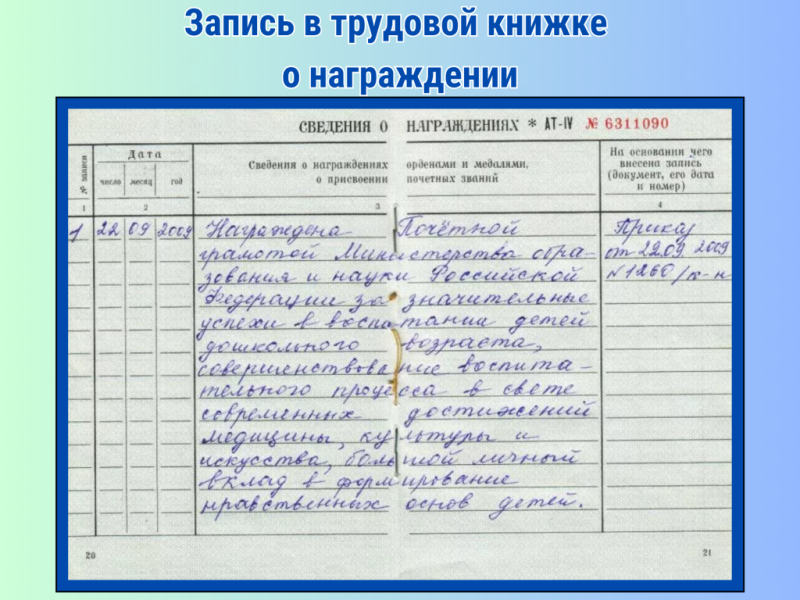 Запись в трудовой книжке
о награждении
СВЕДЕНИЯ О НАГРАЖДЕНИЯХ * АТ-IV № 6311090
№ записи
Дата
число месяц год
Сведения о награждениях орденами и медалями,
о присвоении почетных званий
На основании чего
внесена запись
(документ, его дата
и номер)
1 2 3 4
1 22 09 2009 Награждена Почётной Приказ
грамотой Министерства обра- от 22.09 2009
зования и науки Российской N 1260/к-н
Федерации за значительные
успехи в воспитании детей
дошкольного возраста,
совершенствование воспита-
тельного процесса в свете
современных достижений
медицины, культуры и
искусства, большой личный
вклад в формирование
нравственных основ детей.
20 21